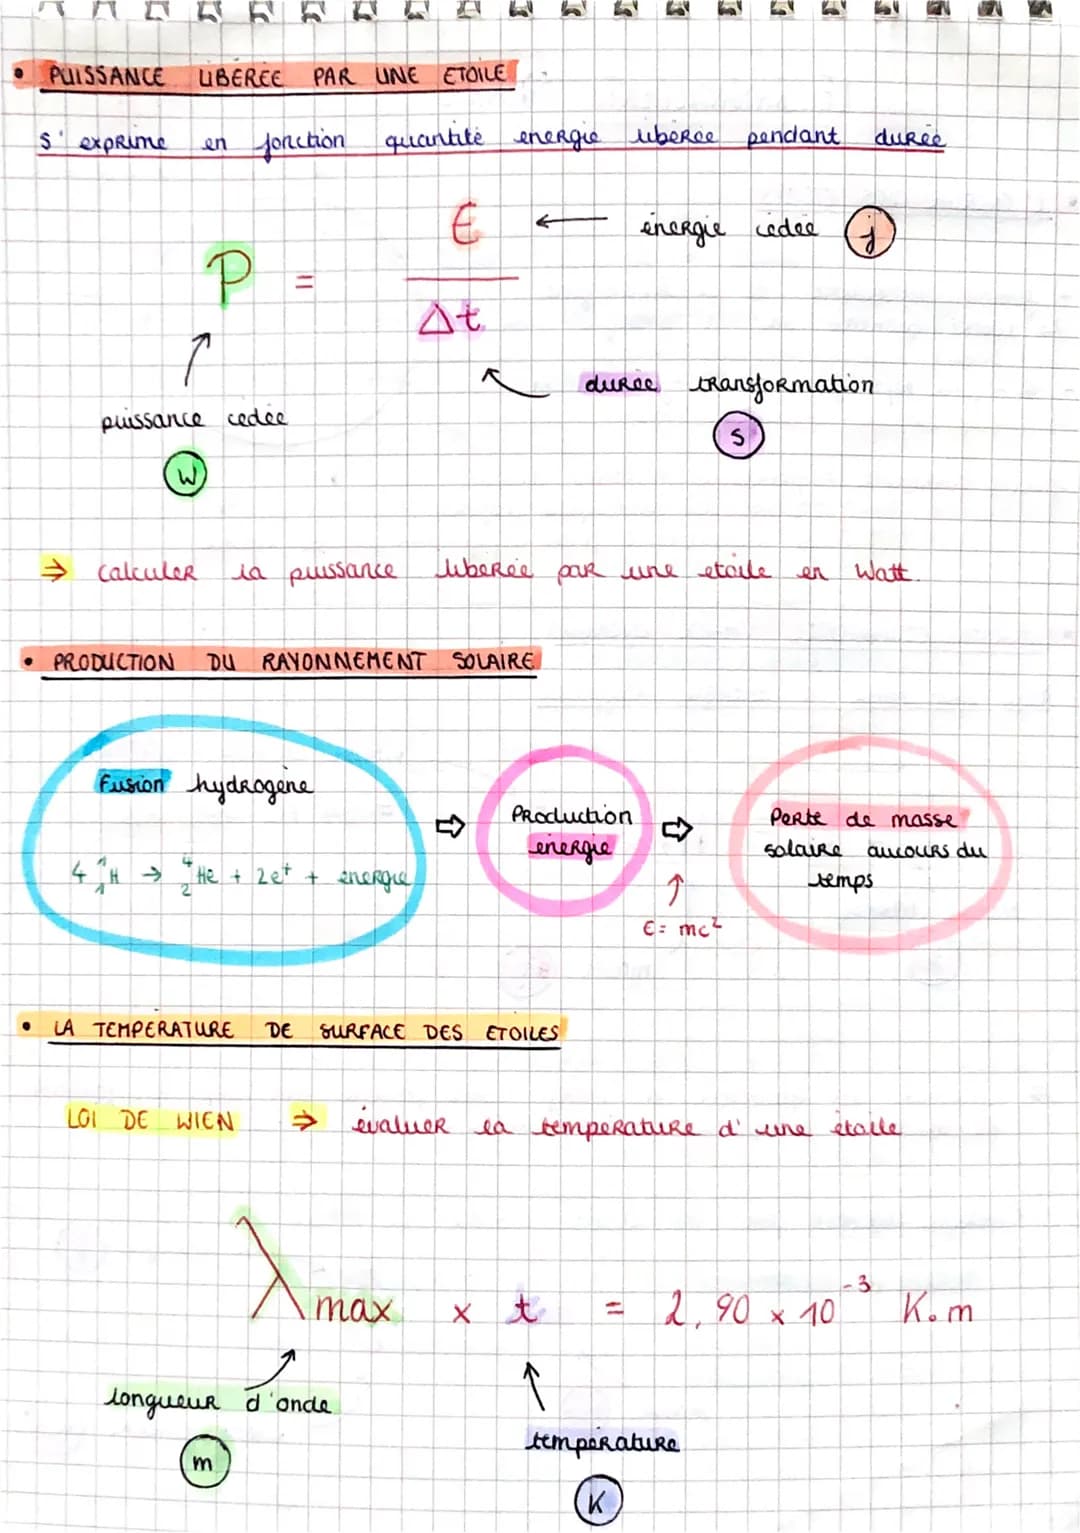 • PUISSANCE LIBEREE PAR UNE ETOILE
s'exprime en fonction quantité energie libérée pendant durée
P = E / Δt
← énergie cédée (j)
durée transformation
(s)
puissance cedée
(W)
⇒ calculer la puissance libérée par une etoile en Watt.
• PRODUCTION DU RAYONNEMENT SOLAIRE
Fusion hydrogène
4 ¹₁H → ⁴₂He + 2e⁺ + énergie
⇨
Production
énergie
⇨
E = mc²
Perte de masse
solaire aucours du
temps
• LA TEMPERATURE DE SURFACE DES ETOILES
LOI DE WIEN ⇒ évaluer la température d'une étoile
λmax × t = 2,90 × 10⁻³ K.m
longueur d'onde
(m)
température
(K)